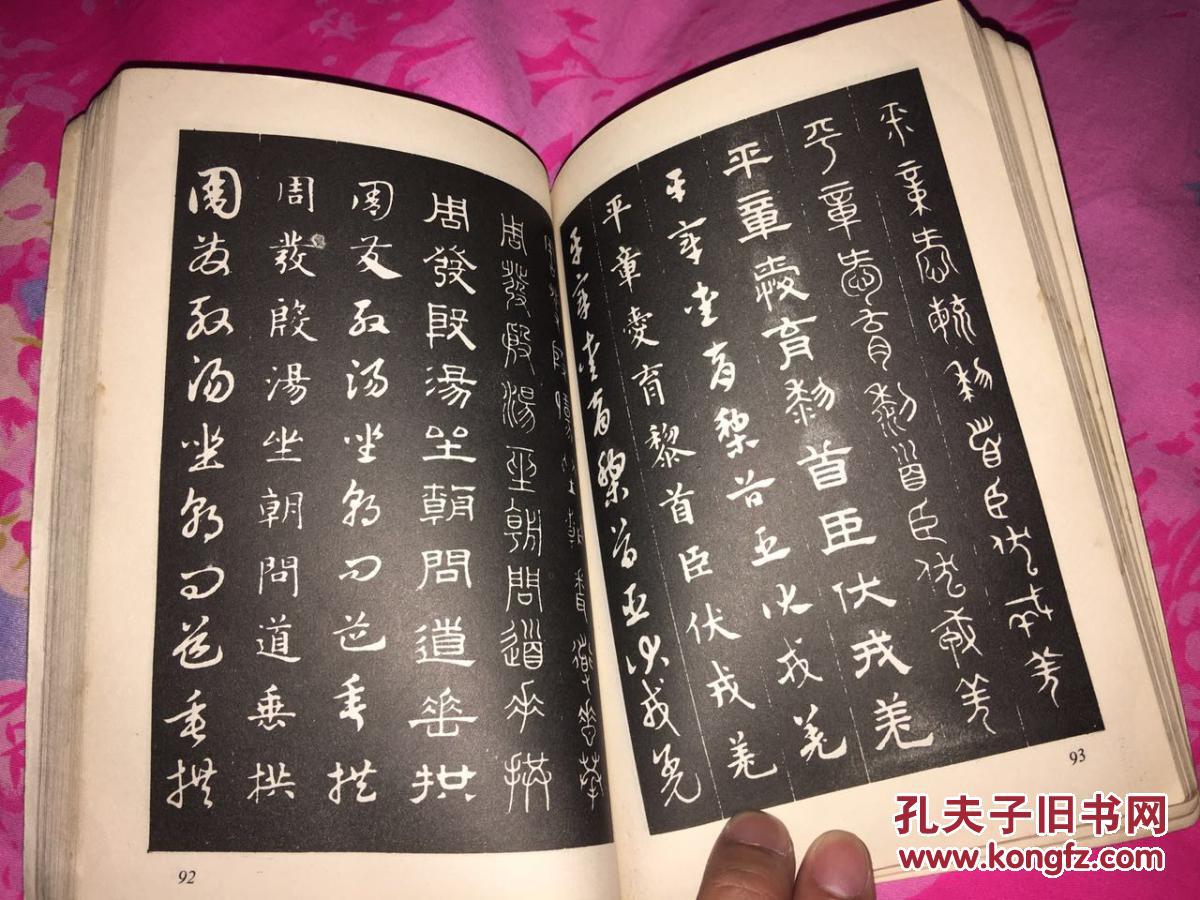 周發殷湯坐朝問道垂拱
周發殷湯坐朝問道垂拱
周發殷湯坐朝問道垂拱
周發殷湯坐朝問道垂拱
周發殷湯坐朝問道垂拱
周發殷湯坐朝問道垂拱
92
平章愛育黎首臣伏戎羌
平章愛育黎首臣伏戎羌
平章愛育黎首臣伏戎羌
平章愛育黎首臣伏戎羌
平章愛育黎首臣伏戎羌
平章愛育黎首臣伏戎羌
93
孔夫子旧书网
www.kongfz.com